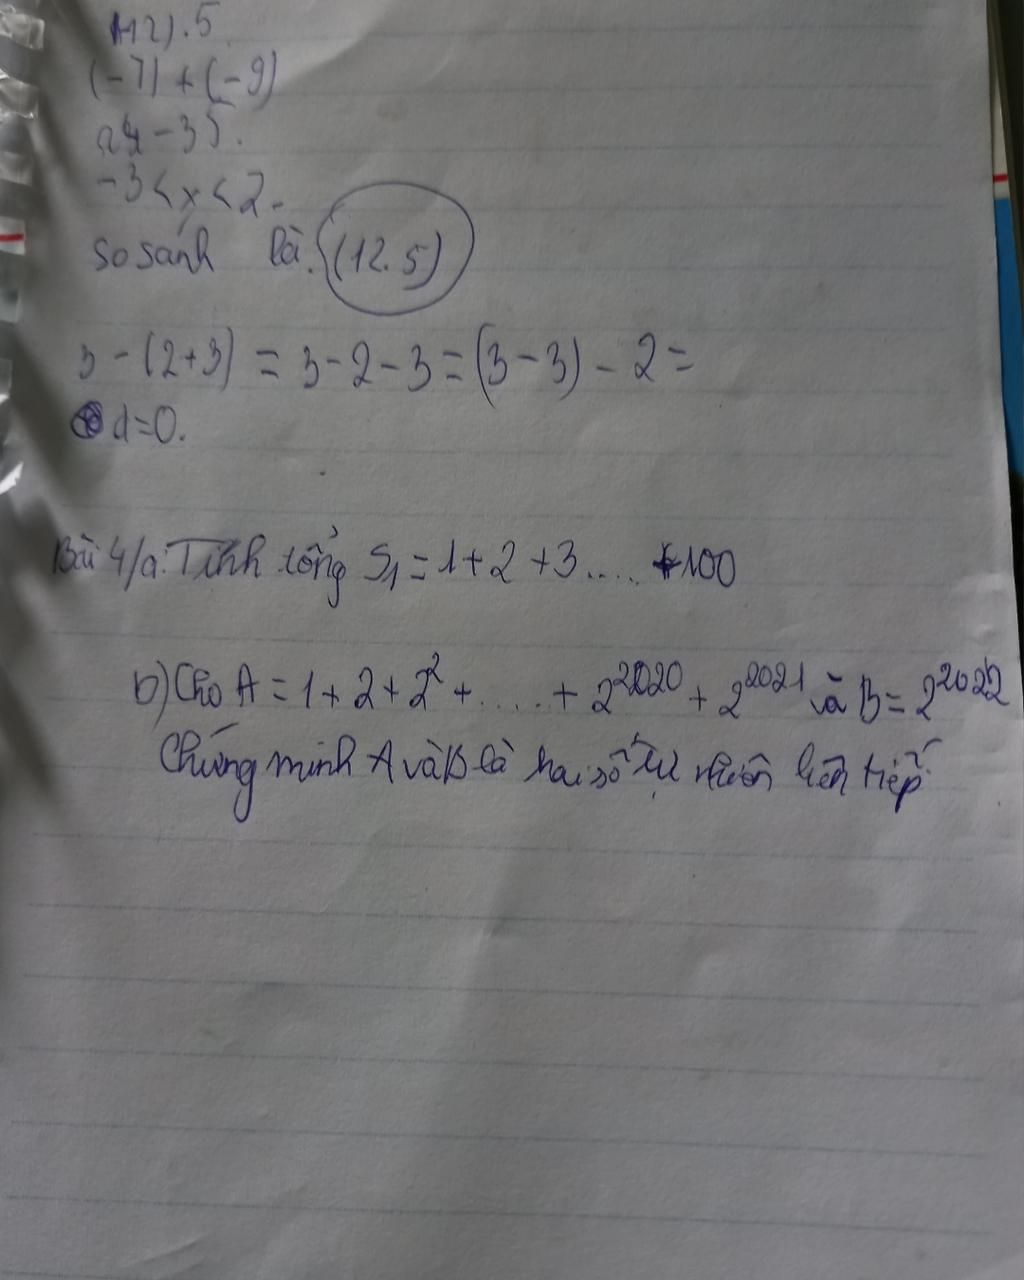 (-12).5
(-7) + (-9)
24 - 35.
-3 < x < 2.
so sánh là. (12.5)
3 - (2+3) = 3 - 2 - 3 = (3 - 3) - 2 =
d=0.
Bài 4/a: Tính tổng S₁ = 1 + 2 + 3.... + 100
b) Cho A = 1 + 2 + 2² + ..... + 2²⁰²⁰ + 2²⁰²¹ và B = 2²⁰²²
Chứng minh A và B là hai số tự nhiên liên tiếp.